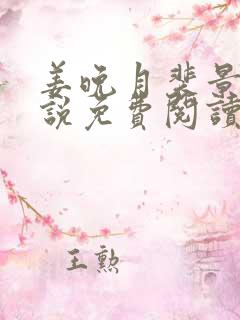 姜晚月裴景
說免費閱讀
王勲